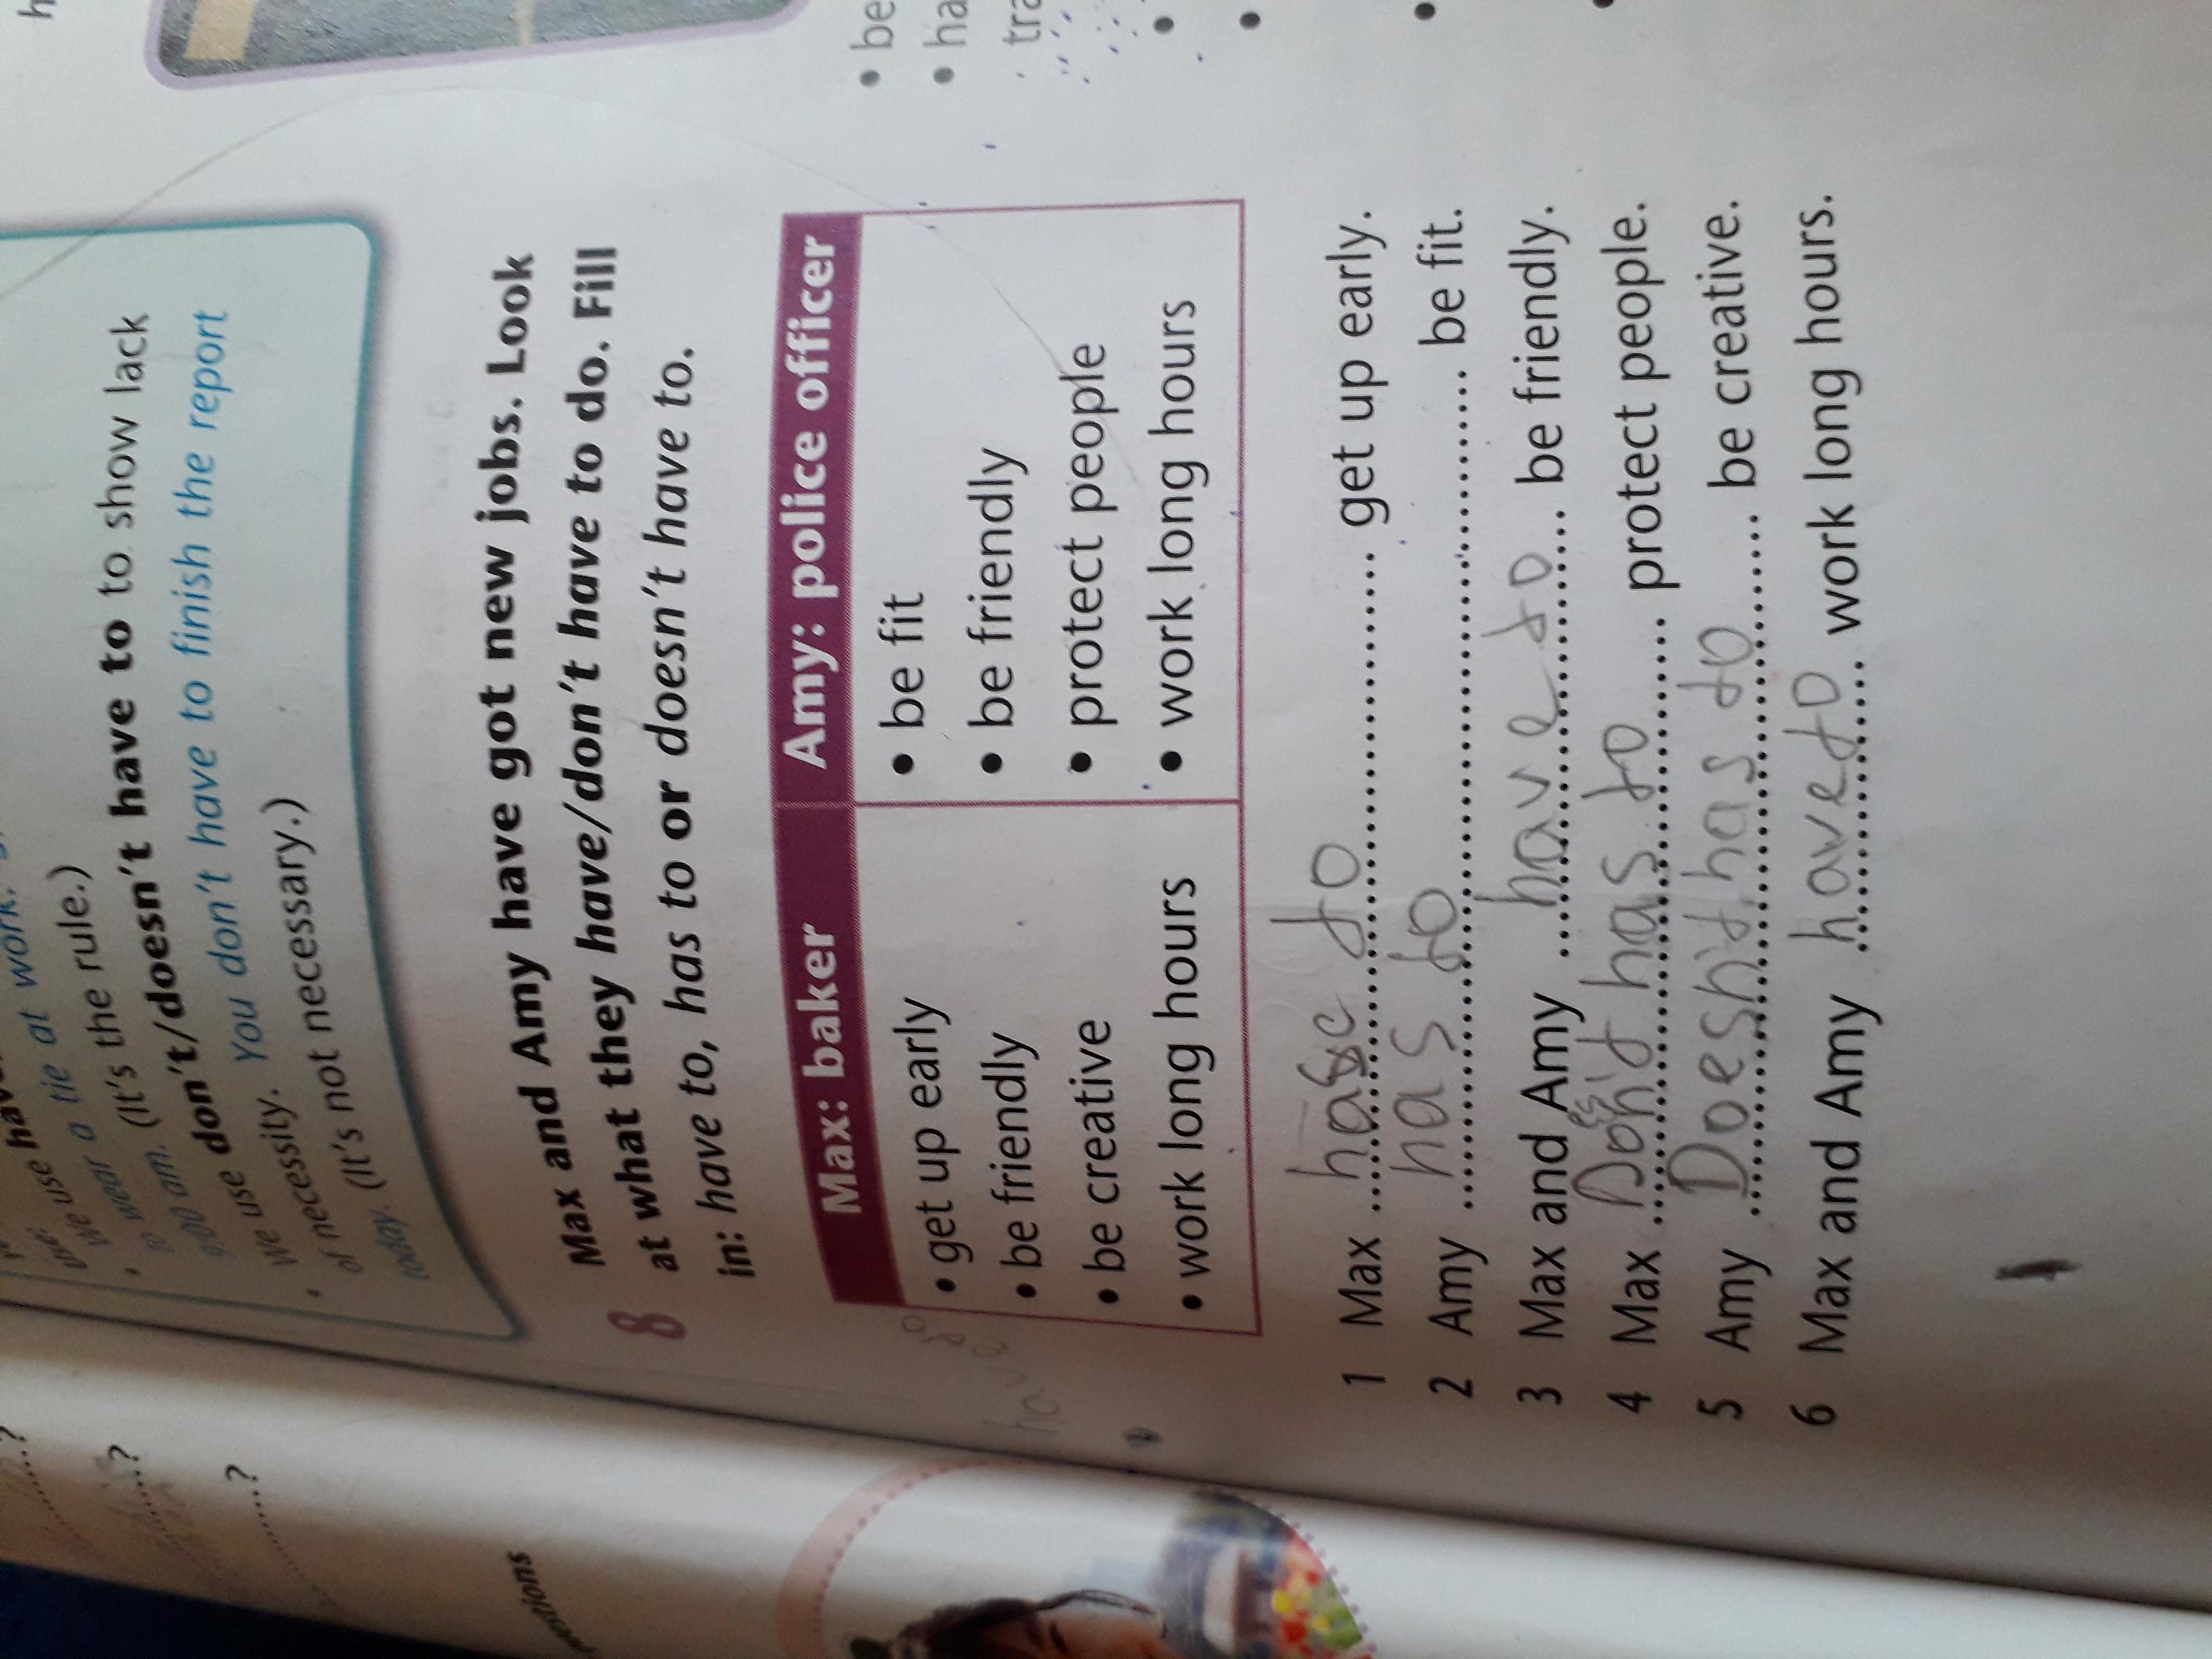 we use
wear a tie at work.
(It's the rule.)
don't/doesn't have to to show lack
We use
of necessity. You don't have to finish the report
today. (It's not necessary.)
8 Max and Amy have got new jobs. Look
at what they have/don't have to do. Fill
in: have to, has to or doesn't have to.
Max: baker Amy: police officer
• get up early • be fit
• be friendly • be friendly
• be creative • protect people
• work long hours • work long hours
1 Max to get up early.
2 Amy has to be fit.
3 Max and Amy have to be friendly.
4 Max has to protect people.
5 Amy Doesn't has to be creative.
6 Max and Amy have to work long hours.
• be
• ha
tra
?
?
?